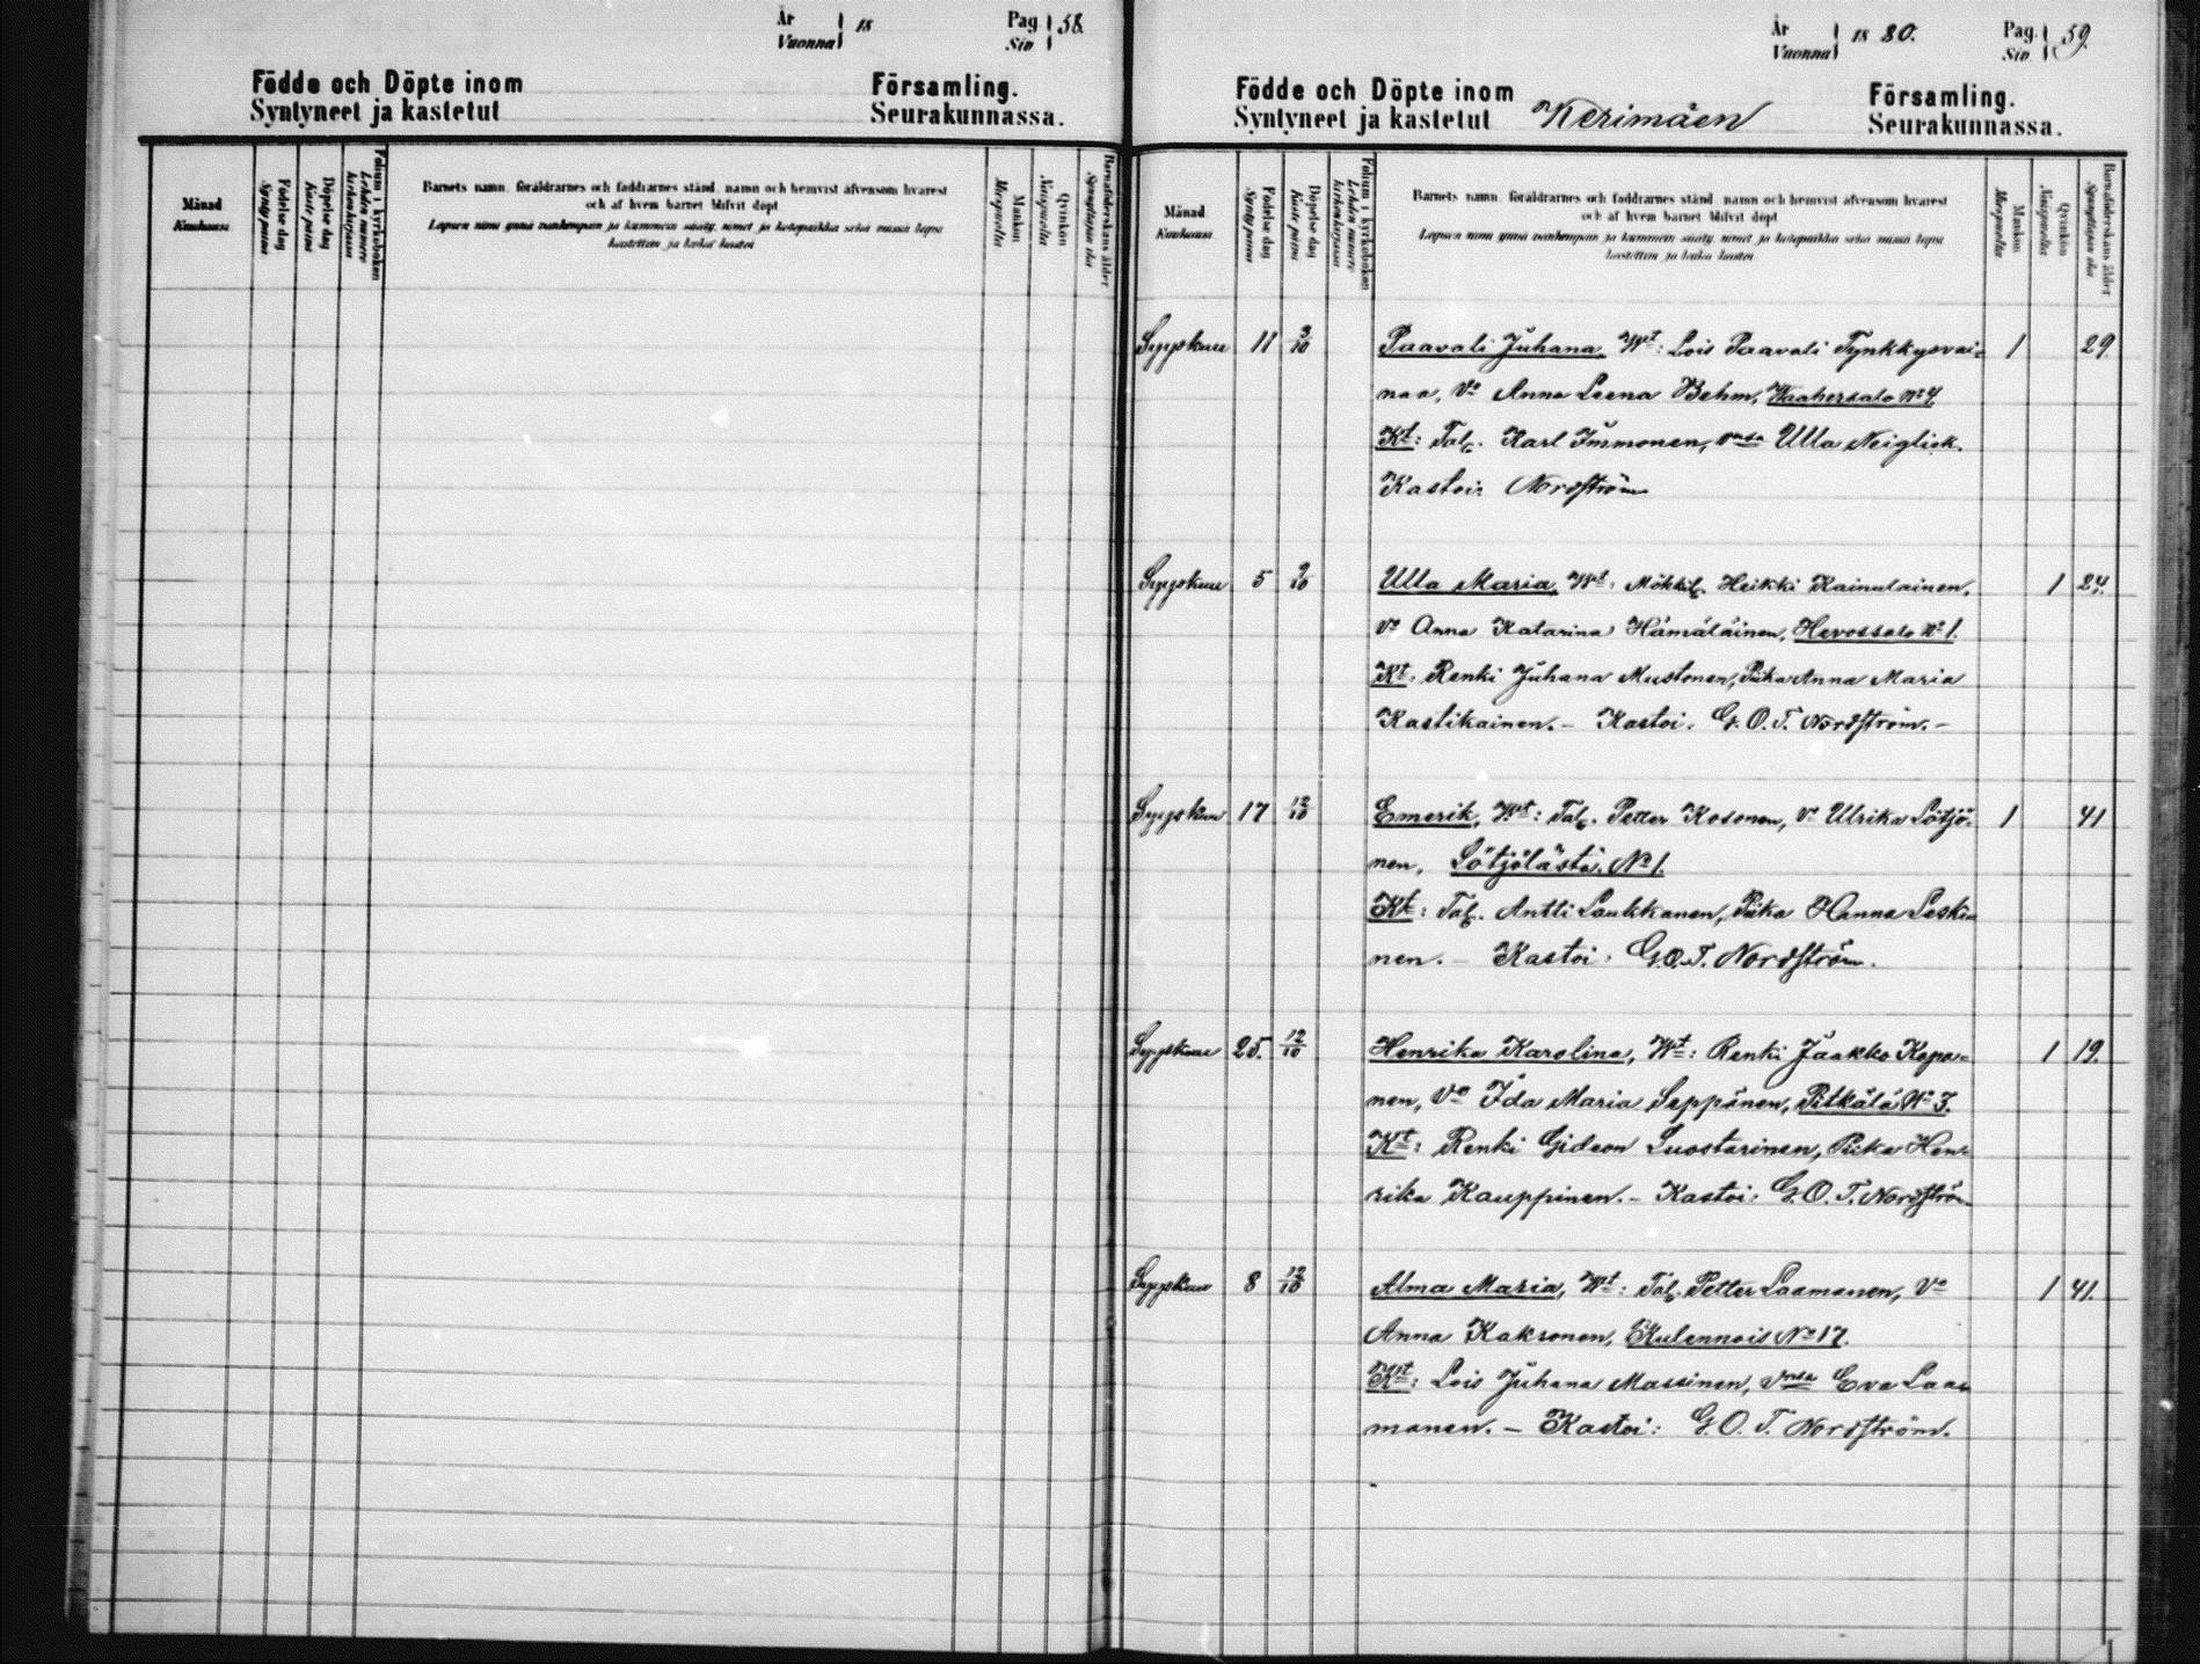 År
Vuonna 18
Pag.
Siv. 58.
Födde och Döpte inom Församling.
Syntyneet ja kastetut Seurakunnassa.
Månad
Kuukausi
Födelse dag
Synty päivä
Döpelse dag
Kaste päivä
Folium i kyrkoboken
Lehden numero
kirkonkirjassa
Barnets namn, föräldrarnes och faddrarnes stånd, namn och hemvist äfvensom hvarest
och af hvem barnet blifvit döpt
Lapsen nimi ynnä vanhempain ja kummein sääty, nimet ja kotopaikka sekä missä lapsi
kastettiin ja kuka kastoi
Mankön
Miespuolta
Qvinkön
Naispuolta
Barnaföderskans ålder
Synnyttäjän ikä
År
Vuonna 1880.
Pag.
Siv. 59.
Födde och Döpte inom Församling.
Syntyneet ja kastetut Kerimäen Seurakunnassa.
Månad
Kuukausi
Födelse dag
Synty päivä
Döpelse dag
Kaste päivä
Folium i kyrkoboken
Lehden numero
kirkonkirjassa
Barnets namn, föräldrarnes och faddrarnes stånd, namn och hemvist äfvensom hvarest
och af hvem barnet blifvit döpt
Lapsen nimi ynnä vanhempain ja kummein sääty, nimet ja kotopaikka sekä missä lapsi
kastettiin ja kuka kastoi
Mankön
Miespuolta
Qvinkön
Naispuolta
Barnaföderskans ålder
Synnyttäjän ikä
Syyskuu 11 3/10 Paavali Juhana, Wt: Lois Paavali Tynkkysvai- 1 29
naa, Vo Anna Leena Behm, Waahersalo No 4
Kt: Tal. Karl Immonen, vnsa Ulla Neiglick.
Kastoi: Nordström
Syyskuu 5 9/10 Ulla Maria, Wt: Mökkil. Heikki Kainulainen, 1 24.
Vo Anna Katarina Hämäläinen, Hevossalo No 1.
Kt: Renki Juhana Mustonen, Piika Anna Maria
Kastikainen. – Kastoi: G. O. T. Nordström. –
Syyskuu 17 12/10 Emerik, Wt: Tal. Petter Kosonen, Vo Ulrika Lötjö- 1 41
nen, Lötjölästä. No 1.
Kt: Tal. Antti Laukkanen, Piika Hanna Leski-
nen. – Kastoi: G. O. T. Nordström.
Syyskuu 25. 12/10 Henrika Karolina, Wt: Renki Jaakko Kapa- 1 19.
nen, Vo Ida Maria Seppänen, Pitkälä No 3.
Kt: Renki Gideon Luostarinen, Piika Hen-
rika Kauppinen. – Kastoi: G. O. T. Nordström
Syyskuu 8 12/10 Alma Maria, Wt: Tal. Petter Laamanen, Vo 1 41.
Anna Kaksonen, Kulennois No 17.
Kt: Lois Juhana Massinen, vnsa Eva Laa-
manen. – Kastoi: G. O. T. Nordström.